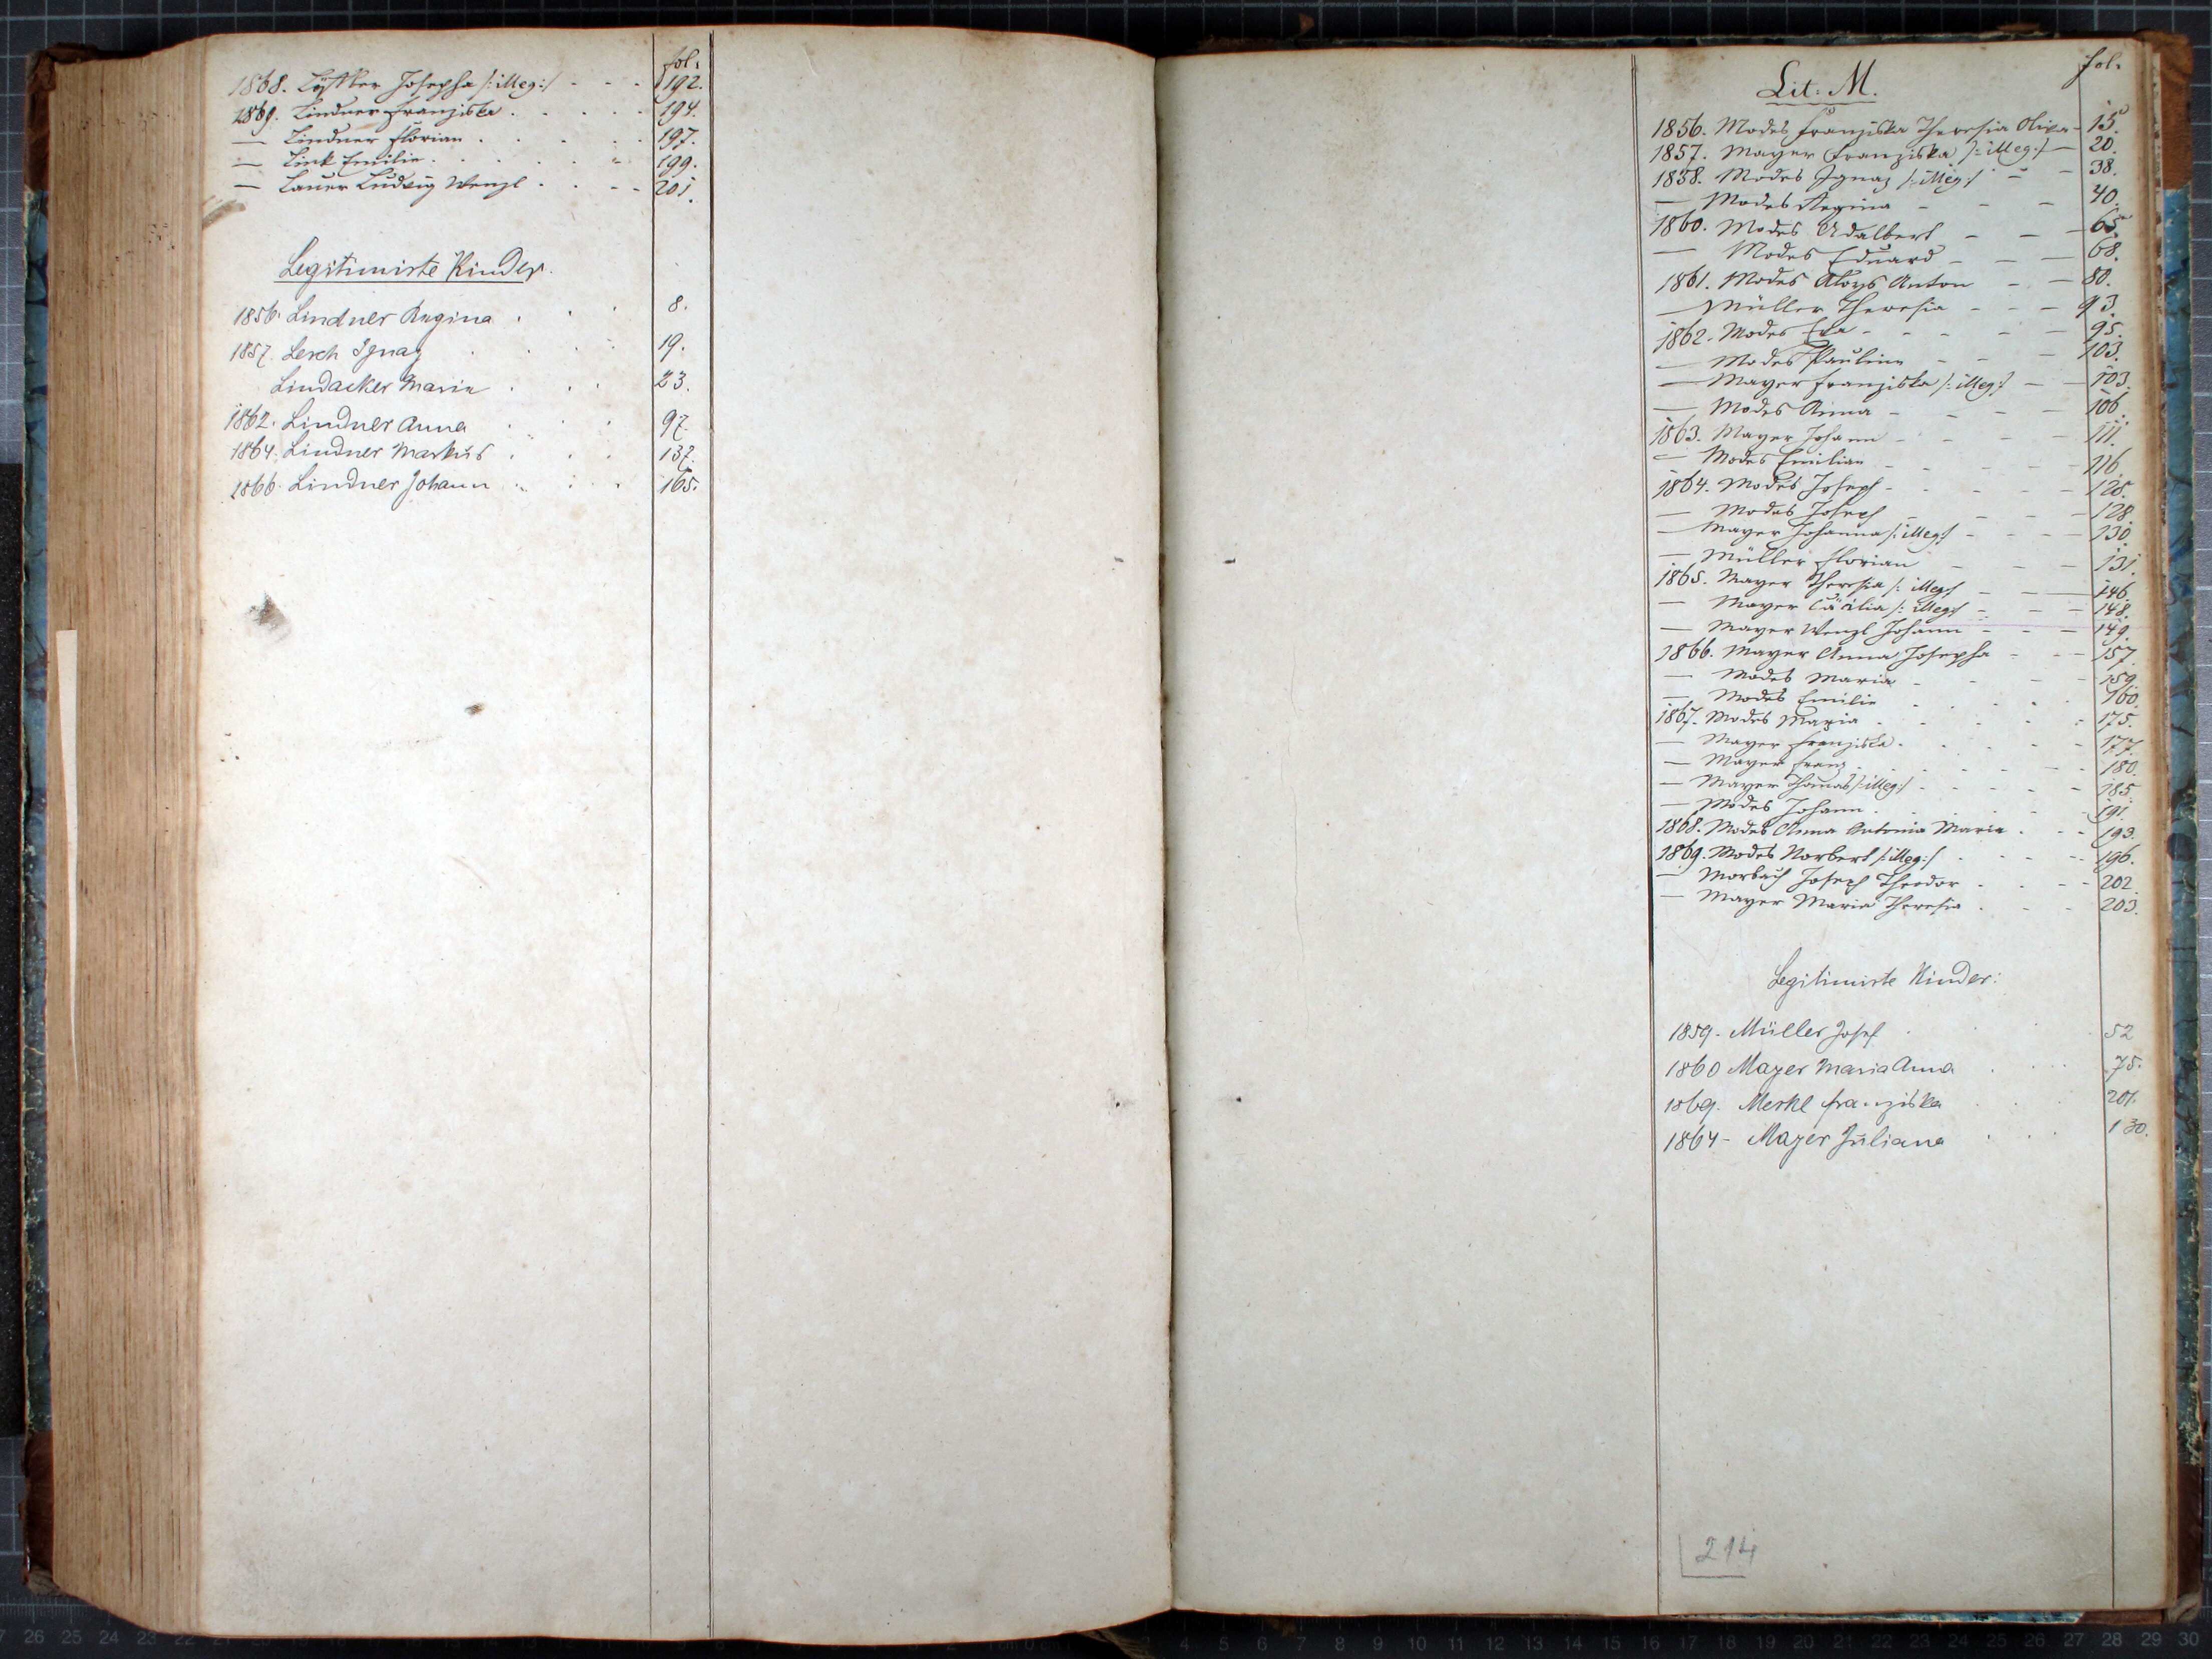 fol.
1868. Josepha /: illeg:/ - - - 192.
1869. Lindner Franziska . . . . . 194.
— Lindner Florian . . . . . 197.
— Link Emilie . . . . . 199.
— Lauer Ludwig Wenzl . . - - 201.
Legitimirte Kinder.
1856. Lindner Regina . . . 8.
1857. Lerch Ignaz . . . 19.
Lindacker Maria . . . 23.
1862. Lindner Anna . . . 97.
1864. Lindner Markus . . . 137.
1866. Lindner Johann . . . 165.
Lit: M.
fol.
1856. Modes Franziska Theresia Oliva - 15.
1857. Mayer Franziska /: illeg:/ — 20.
1858. Modes Ignaz /: illeg:/ - - 38.
— Modes Regina - - - 40.
1860. Modes Adalbert - - - 65.
— Modes Eduard - - - 68.
1861. Modes Aloys Anton - - 80.
— Müller Theresia - - - 93.
1862. Modes Eva - - - - 95.
— Modes Paulina - - - 103.
— Mayer Franziska /: illeg:/ - - 103.
— Modes Anna - - - - 106.
1863. Mayer Johann - - - - 111.
— Modes Emilian - - - - 116.
1864. Modes Joseph - - - - 128.
— Modes Joseph - - - - 128.
— Mayer Johanna /: illeg:/ - - - 130.
— Müller Florian - - - 131.
1865. Mayer Theresia /: illeg:/ - - - 146.
— Mayer Cäcilia /: illeg:/ - - - 148.
— Mayer Wenzl Johann - - - 149.
1866. Mayer Anna Josepha - - - 157.
— Modes Maria - - - - 159.
— Modes Emilie . . . . 160.
1867. Modes Maria . . . . 175.
— Mayer Franziska . . . - 177.
— Mayer Franz . . . - - 180.
— Mayer Thomas /: illeg:/ . - - - 185
— Modes Johann . . . - 191.
1868. Modes Anna Antonia Maria . - - 193.
1869. Modes Norbert /: illeg:/ . . - - 196.
— Morbach Joseph Theodor . . - - 202.
— Mayer Maria Theresia . - - 203.
Legitimirte Kinder:
1859. Müller Josef . . . 52
1860 Mayer Maria Anna . . . 75.
1869. Merkl Franziska . . . 201.
1864 - Mayer Juliana . . . 130.
214